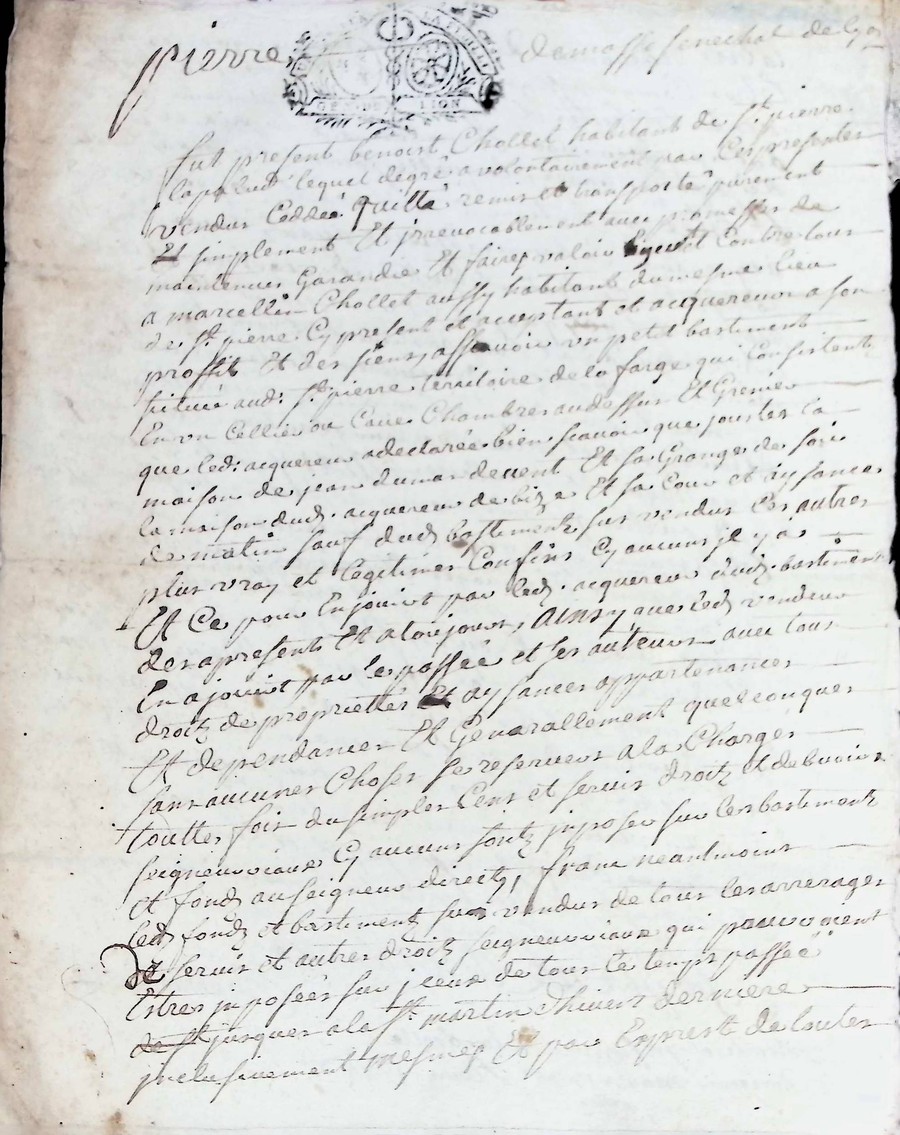 pierre demasse senechal de Lyon
GE DE LION
fut present benoist Chollet habitant de st. pierre
lapalud lequel degré a volontairement par ces presentes
vendus Ceddéé quitté remis et transporté purement
Et simplement Et jrrevocablement avec promesses de
maintenir Garandir Et faire valoir Contre tous
a marcellin Chollet aussy habitant du mesme lieu
de st. pierre Cy present et acceptant et acquereur a son
proffit Et des siens, assavoir un petit bastiment
situéé aud. st. pierre territoire de la farge qui Consistent
En un Cellier ou Cave Chambres audessus Et Grenier
que led. acquereur a declaréé bien scavoir que jouste la
maison de jean dumas de vent Et sa Grange de soir
la maison dud. acquereur de bize Et sa Cour et aysances
de matin sauf dud. bastiments sus vendus Ces autres
plus vray et Legitimes Confins Cy aucuns jl y as
Et Ce pour En jouir par led. acquereur dud. bastiment
des apresent Et a toujours, Ainsy que led. vendeur
En a jouit par le passéé et ses auteurs avec tous
droitz de proprietés Et aysances appartenances
Et dependances Et Generallement quelconques
sans aucunes Choses se reserver a la Charges
touttes fois du simples Cens et servis droitz et devoirs
seigneuriaux Cy aucuns sontz jnposes sur les bastimentz
et fonds au seigneur directz, franc neantmoins
led. fondz et bastimentz sus vendus de tous les arrerages
De servis et autres droitz seigneuriaux qui pouvoyent
Estres jnposéés sur jceux de tous le temps passéé
jusques a la st. martin dhiver derniere
jnclusivement mesmes Et par Exprest de toutes